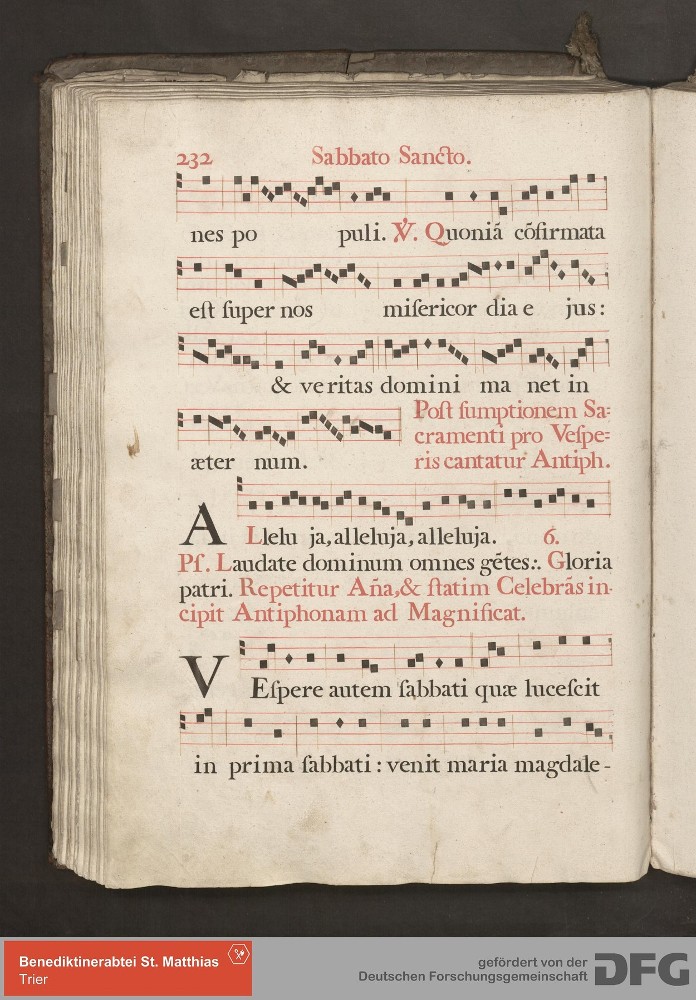 232 Sabbato Sancto.
nes po puli. ℣. Quoniã cõfirmata
eſt ſuper nos miſericor dia e jus:
& veritas domini ma net in
æter num.
Poſt ſumptionem Sa=
cramenti pro Veſpe=
ris cantatur Antiph.
ALlelu ja, alleluja, alleluja. 6.
Pſ. Laudate dominum omnes gẽtes.. Gloria
patri. Repetitur Aña, & ſtatim Celebrãs in-
cipit Antiphonam ad Magnificat.
VEſpere autem ſabbati quæ luceſcit
in prima ſabbati: venit maria magdale-
Benediktinerabtei St. Matthias
Trier
gefördert von der
Deutschen Forschungsgemeinschaft
DFG